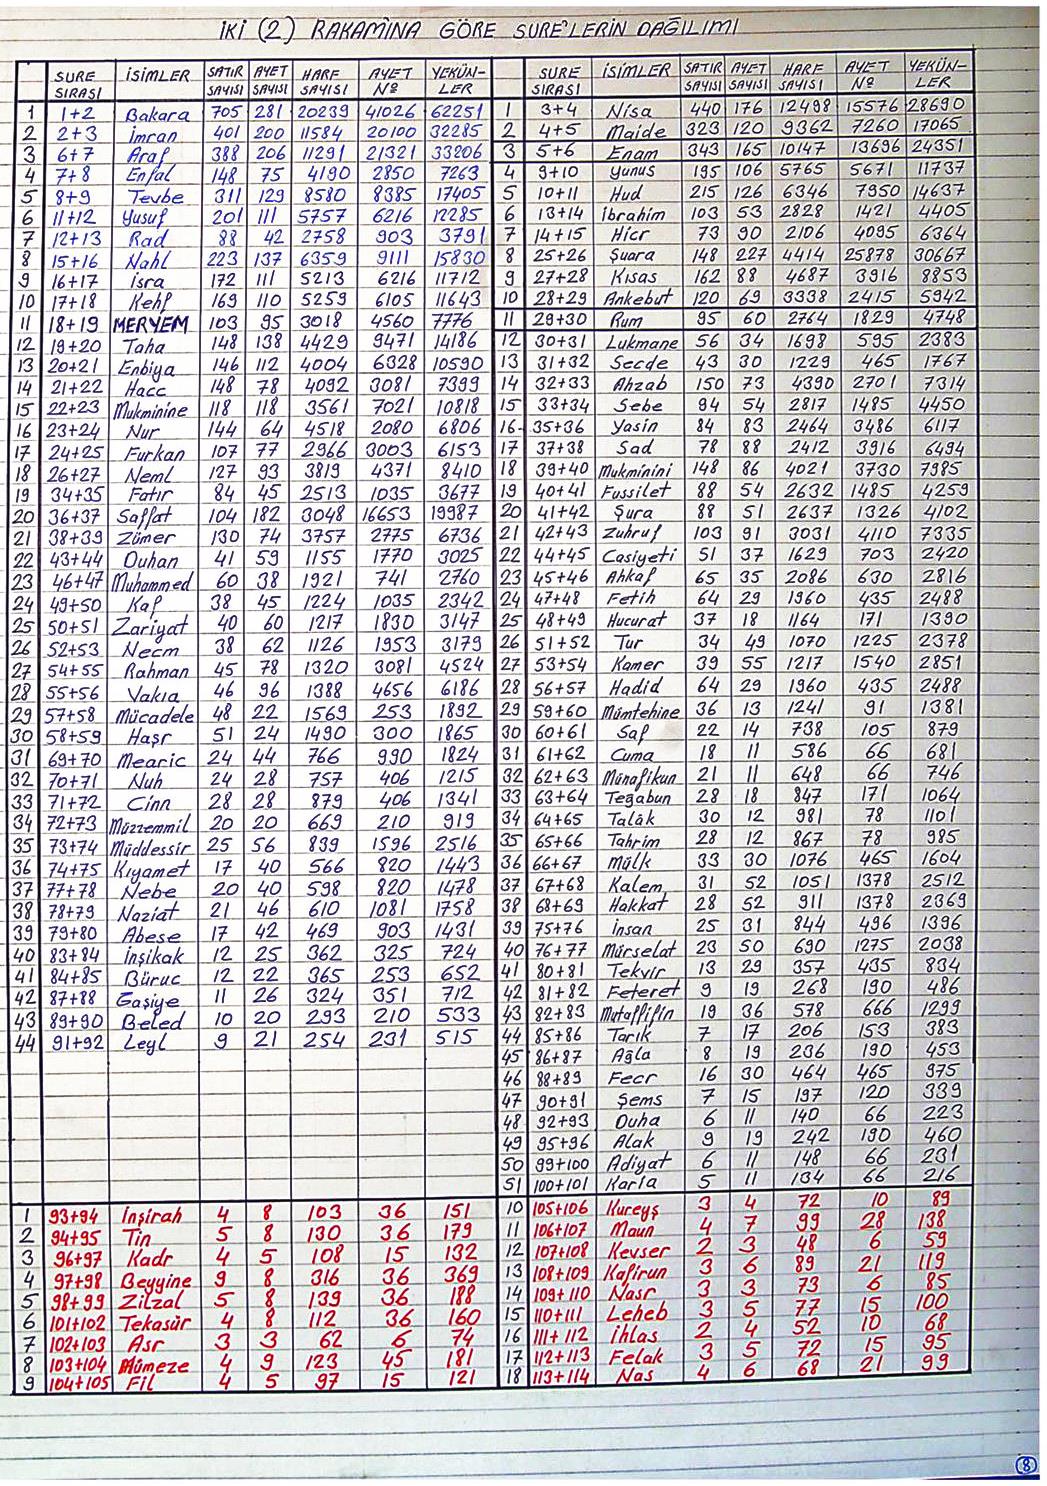 İKİ (2) RAKAMINA GÖRE SURE'LERİN DAĞILIMI
SURE SIRASI İSİMLER SATIR SAYISI AYET SAYISI HARF SAYISI AYET Nº YEKÜN-LER SURE SIRASI İSİMLER SATIR SAYISI AYET SAYISI HARF SAYISI AYET Nº YEKÜN-LER
1 1+2 Bakara 705 281 20239 41026 62251 1 3+4 Nisa 440 176 12498 15576 28690
2 2+3 İmran 401 200 11584 20100 32285 2 4+5 Maide 323 120 9362 7260 17065
3 6+7 Araf 388 206 11291 21321 33206 3 5+6 Enam 343 165 10147 13696 24351
4 7+8 Enfal 148 75 4190 2850 7263 4 9+10 Yunus 195 106 5765 5671 11737
5 8+9 Tevbe 311 129 8580 8385 17405 5 10+11 Hud 215 126 6346 7950 14637
6 11+12 Yusuf 201 111 5757 6216 12285 6 13+14 İbrahim 103 53 2828 1421 4405
7 12+13 Rad 88 42 2758 903 3791 7 14+15 Hicr 73 90 2106 4095 6364
8 15+16 Nahl 223 137 6359 9111 15830 8 25+26 Şuara 148 227 4414 25878 30667
9 16+17 İsra 172 111 5213 6216 11712 9 27+28 Kısas 162 88 4687 3916 8853
10 17+18 Kehf 169 110 5259 6105 11643 10 28+29 Ankebut 120 69 3338 2415 5942
11 18+19 MERYEM 103 95 3018 4560 7776 11 29+30 Rum 95 60 2764 1829 4748
12 19+20 Taha 148 138 4429 9471 14186 12 30+31 Lukmane 56 34 1698 595 2383
13 20+21 Enbiya 146 112 4004 6328 10590 13 31+32 Secde 43 30 1229 465 1767
14 21+22 Hacc 148 78 4092 3081 7399 14 32+33 Ahzab 150 73 4390 2701 7314
15 22+23 Mukminine 118 118 3561 7021 10818 15 33+34 Sebe 94 54 2817 1485 4450
16 23+24 Nur 144 64 4518 2080 6806 16 35+36 Yasin 84 83 2464 3486 6117
17 24+25 Furkan 107 77 2966 3003 6153 17 37+38 Sad 78 88 2412 3916 6494
18 26+27 Neml 127 93 3819 4371 8410 18 39+40 Mukminini 148 86 4021 3730 7985
19 34+35 Fatır 84 45 2513 1035 3677 19 40+41 Fussilet 88 54 2632 1485 4259
20 36+37 Saffat 104 182 3048 16653 19987 20 41+42 Şura 88 51 2637 1326 4102
21 38+39 Zümer 130 74 3757 2775 6736 21 42+43 Zuhruf 103 91 3031 4110 7335
22 43+44 Duhan 41 59 1155 1770 3025 22 44+45 Casiyeti 51 37 1629 703 2420
23 46+47 Muhammed 60 38 1921 741 2760 23 45+46 Ahkaf 65 35 2086 630 2816
24 49+50 Kaf 38 45 1224 1035 2342 24 47+48 Fetih 64 29 1960 435 2488
25 50+51 Zariyat 40 60 1217 1830 3147 25 48+49 Hucurat 37 18 1164 171 1390
26 52+53 Necm 38 62 1126 1953 3179 26 51+52 Tur 34 49 1070 1225 2378
27 54+55 Rahman 45 78 1320 3081 4524 27 53+54 Kamer 39 55 1217 1540 2851
28 55+56 Vakıa 46 96 1388 4656 6186 28 56+57 Hadid 64 29 1960 435 2488
29 57+58 Mücadele 48 22 1569 253 1892 29 59+60 Mümtehine 36 13 1241 91 1381
30 58+59 Haşr 51 24 1490 300 1865 30 60+61 Saf 22 14 738 105 879
31 69+70 Mearic 24 44 766 990 1824 31 61+62 Cuma 18 11 586 66 681
32 70+71 Nuh 24 28 757 406 1215 32 62+63 Münafikun 21 11 648 66 746
33 71+72 Cinn 28 28 879 406 1341 33 63+64 Teğabun 28 18 847 171 1064
34 72+73 Müzzemmil 20 20 669 210 919 34 64+65 Talâk 30 12 981 78 1101
35 73+74 Müddessir 25 56 839 1596 2516 35 65+66 Tahrim 28 12 867 78 985
36 74+75 Kıyamet 17 40 566 820 1443 36 66+67 Mülk 33 30 1076 465 1604
37 77+78 Nebe 20 40 598 820 1478 37 67+68 Kalem 31 52 1051 1378 2512
38 78+79 Naziat 21 46 610 1081 1758 38 68+69 Hakkat 28 52 911 1378 2369
39 79+80 Abese 17 42 469 903 1431 39 75+76 İnsan 25 31 844 496 1396
40 83+84 İnşikak 12 25 362 325 724 40 76+77 Mürselat 23 50 690 1275 2038
41 84+85 Büruc 12 22 365 253 652 41 80+81 Tekvir 13 29 357 435 834
42 87+88 Gaşiye 11 26 324 351 712 42 81+82 Feteret 9 19 268 190 486
43 89+90 Beled 10 20 293 210 533 43 82+83 Mutaffifin 19 36 578 666 1299
44 91+92 Leyl 9 21 254 231 515 44 85+86 Tarık 7 17 206 153 383
45 86+87 Ağla 8 19 236 190 453
46 88+89 Fecr 16 30 464 465 975
47 90+91 Şems 7 15 197 120 339
48 92+93 Duha 6 11 140 66 223
49 95+96 Alak 9 19 242 190 460
50 99+100 Adiyat 6 11 148 66 231
51 100+101 Karia 5 11 134 66 216
1 93+94 İnşirah 4 8 103 36 151 10 105+106 Kureyş 3 4 72 10 89
2 94+95 Tin 5 8 130 36 179 11 106+107 Maun 4 7 99 28 138
3 96+97 Kadr 4 5 108 15 132 12 107+108 Kevser 2 3 48 6 59
4 97+98 Beyyine 9 8 316 36 369 13 108+109 Kafirun 3 6 89 21 119
5 98+99 Zilzal 5 8 139 36 188 14 109+110 Nasr 3 3 73 6 85
6 101+102 Tekasür 4 8 112 36 160 15 110+111 Leheb 3 5 77 15 100
7 102+103 Asr 3 3 62 6 74 16 111+112 İhlas 2 4 52 10 68
8 103+104 Hümeze 4 9 123 45 181 17 112+113 Felak 3 5 72 15 95
9 104+105 Fil 4 5 97 15 121 18 113+114 Nas 4 6 68 21 99
8